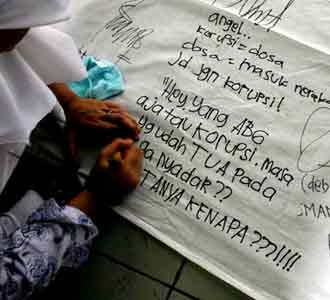 angel..
korupsi = dosa
dosa = masuk neraka
Jd jgn korupsi!
"Hey yang ABG
aja tau korupsi, masa
yg udah TUA pada
ga nyadar??
TANYA KENAPA???!!!!
(deb
SMAN